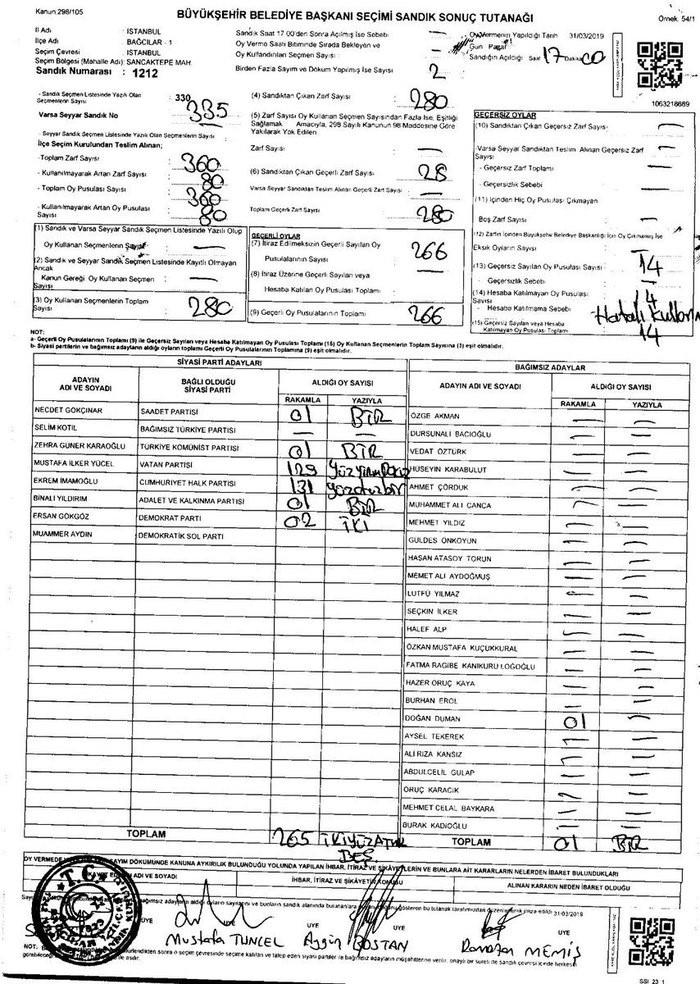 Kanun:298/105
BÜYÜKŞEHİR BELEDİYE BAŞKANI SEÇİMİ SANDIK SONUÇ TUTANAĞI
Örnek: 54/1
İl Adı : İSTANBUL
İlçe Adı : BAĞCILAR - 1
Seçim Çevresi : İSTANBUL
Seçim Bölgesi (Mahalle Adı): SANCAKTEPE MAH.
Sandık Numarası : 1212
Sandık Saat 17:00'den Sonra Açılmış İse Sebebi :
Oy Verme Saati Bitiminde Sırada Bekleyen ve
Oy Kullandırılan Seçmen Sayısı :
Birden Fazla Sayım ve Döküm Yapılmış İse Sayısı : 2
Oy Vermenin Yapıldığı Tarih 31/03/2019
Gün : Pazar
Sandığın Açıldığı Saat 17 Dakika 00
1063218689
- Sandık Seçmen Listesinde Yazılı Olan
Seçmenlerin Sayısı : 330
335
Varsa Seyyar Sandık No :
- Seyyar Sandık Seçmen Listesinde Yazılı Olan
Seçmenlerin Sayısı :
İlçe Seçim Kurulundan Teslim Alınan;
- Toplam Zarf Sayısı : 360
- Kullanılmayarak Artan Zarf Sayısı : 80
- Toplam Oy Pusulası Sayısı : 360
-Kullanılmayarak Artan Oy Pusulası
Sayısı : 80
(1) Sandık ve Varsa Seyyar Sandık Seçmen Listesinde Yazılı Olup
Oy Kullanan Seçmenlerin Sayısı :
(2) Sandık ve Seyyar Sandık Seçmen Listesinde Kayıtlı Olmayan
Ancak
Kanun Gereği Oy Kullanan Seçmen :
Sayısı
(3) Oy Kullanan Seçmenlerin Toplam
Sayısı : 280
(4) Sandıktan Çıkan Zarf Sayısı : 280
(5) Zarf Sayısı Oy Kullanan Seçmen Sayısından Fazla İse, Eşitliği
Sağlamak Amacıyla, 298 Sayılı Kanunun 98 Maddesine Göre
Yakılarak Yok Edilen
Zarf Sayısı : —
(6) Sandıktan Çıkan Geçerli Zarf Sayısı : 28
Varsa Seyyar Sandıktan Teslim Alınan Geçerli Zarf Sayısı : —
Toplam Geçerli Zarf Sayısı : 280
GEÇERLİ OYLAR
(7) İtiraz Edilmeksizin Geçerli Sayılan Oy
Pusulalarının Sayısı : 266
(8) İtiraz Üzerine Geçerli Sayılan veya
Hesaba Katılan Oy Pusulası Toplamı : —
(9) Geçerli Oy Pusulalarının Toplamı : 266
GEÇERSİZ OYLAR
(10) Sandıktan Çıkan Geçersiz Zarf Sayısı : —
Varsa Seyyar Sandıktan Teslim Alınan Geçersiz Zarf
Sayısı : —
- Geçersiz Zarf Toplamı : —
- Geçersizlik Sebebi : —
(11) İçinden Hiç Oy Pusulası Çıkmayan
Boş Zarf Sayısı : —
(12) Zarfın İçinden Büyükşehir Belediye Başkanlığı İçin Oy Çıkmamış İse
Eksik Oyların Sayısı :
(13) Geçersiz Sayılan Oy Pusulası Sayısı : 14
Geçersizlik Sebebi :
(14) Hesaba Katılmayan Oy Pusulası
Sayısı
- Hesaba Katılmama Sebebi : Hatalı
(15) Geçersiz Sayılan veya Hesaba
Katılmayan Oy Pusulası Toplamı : 14
NOT:
a- Geçerli Oy Pusulalarının Toplamı (9) ile Geçersiz Sayılan veya Hesaba Katılmayan Oy Pusulası Toplamı (15) Oy Kullanan Seçmenlerin Toplam Sayısına (3) eşit olmalıdır.
b- Siyasi partilerin ve bağımsız adayların aldığı oyların toplamı Geçerli Oy Pusulalarının Toplamına (9) eşit olmalıdır.
SİYASİ PARTİ ADAYLARI
ADAYIN ADI VE SOYADI BAĞLI OLDUĞU SİYASİ PARTİ ALDIĞI OY SAYISI
RAKAMLA YAZIYLA
NECDET GÖKÇINAR SAADET PARTİSİ 01 BİR
SELİM KOTİL BAĞIMSIZ TÜRKİYE PARTİSİ — —
ZEHRA GÜNER KARAOĞLU TÜRKİYE KOMÜNİST PARTİSİ 01 BİR
MUSTAFA İLKER YÜCEL VATAN PARTİSİ 129
EKREM İMAMOĞLU CUMHURİYET HALK PARTİSİ 131 yüzotuzbir
BİNALİ YILDIRIM ADALET VE KALKINMA PARTİSİ 01 BİR
ERSAN GÖKGÖZ DEMOKRAT PARTİ 02 İKİ
MUAMMER AYDIN DEMOKRATİK SOL PARTİ
TOPLAM 265 İKİYÜZATMIŞ
BEŞ
BAĞIMSIZ ADAYLAR
ADAYIN ADI VE SOYADI ALDIĞI OY SAYISI
RAKAMLA YAZIYLA
ÖZGE AKMAN — —
DURSUNALİ BACIOĞLU — —
VEDAT ÖZTÜRK — —
HÜSEYİN KARABULUT — —
AHMET ÇÖRDÜK — —
MUHAMMET ALİ CANCA — —
MEHMET YILDIZ — —
GÜLDES ÖNKOYUN — —
HASAN ATASOY TORUN — —
MEMET ALİ AYDOĞMUŞ — —
LÜTFÜ YILMAZ — —
SEÇKİN İLKER — —
HALEF ALP — —
ÖZKAN MUSTAFA KÜÇÜKKURAL — —
FATMA RAGİBE KANIKURU LOĞOĞLU — —
HAZER ORUÇ KAYA — —
BURHAN EROL — —
DOĞAN DUMAN 01 —
AYSEL TEKEREK — —
ALİ RIZA KANSIZ — —
ABDULCELİL GULAP — —
ORUÇ KARACIK — —
MEHMET CELAL BAYKARA — —
BURAK KADIOĞLU — —
TOPLAM 01 BİR
OY VERMEDE SAYIM DÖKÜMÜNDE KANUNA AYKIRILIK BULUNDUĞU YOLUNDA YAPILAN İHBAR, İTİRAZ VE ŞİKAYETLERİN VE BUNLARA AİT KARARLARIN NELERDEN İBARET BULUNDUKLARI
ADI VE SOYADI İHBAR, İTİRAZ VE ŞİKAYETİN KONUSU ALINAN KARARIN NEDEN İBARET OLDUĞU
31/03/2019
T.C.
ÜYE ÜYE ÜYE ÜYE
Mustafa TUNCEL Aygün BOSTAN Ramazan MEMİŞ
SSI_23_1